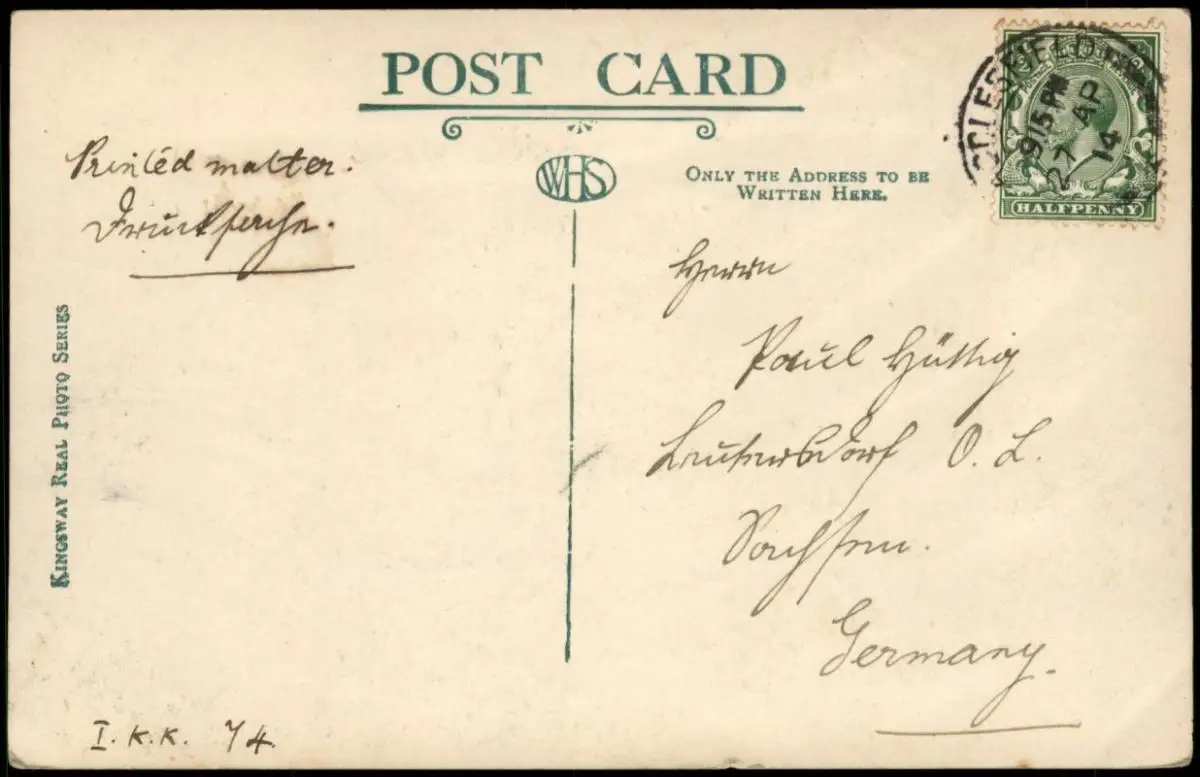 POST CARD
WHS
ONLY THE ADDRESS TO BE
WRITTEN HERE.
Printed matter.
Drucksache.
KINGSWAY REAL PHOTO SERIES
ECCLESFIELD
915 PM
27 AP
14
HALFPENNY
Herrn
Paul Hüttig
Leutersdorf O. L.
Sachsen.
Germany.
I. K. K. 74.